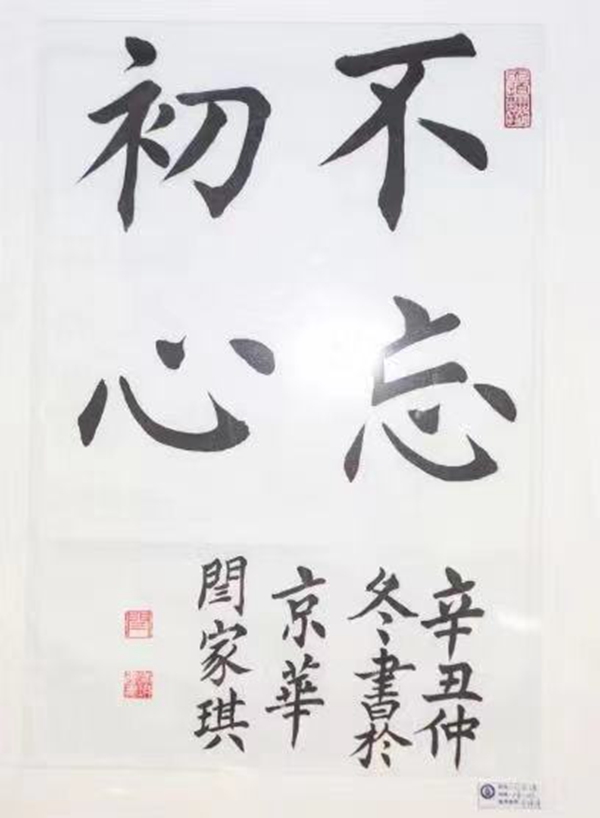 不忘
初心
辛丑仲
冬書於
京華
閆家琪